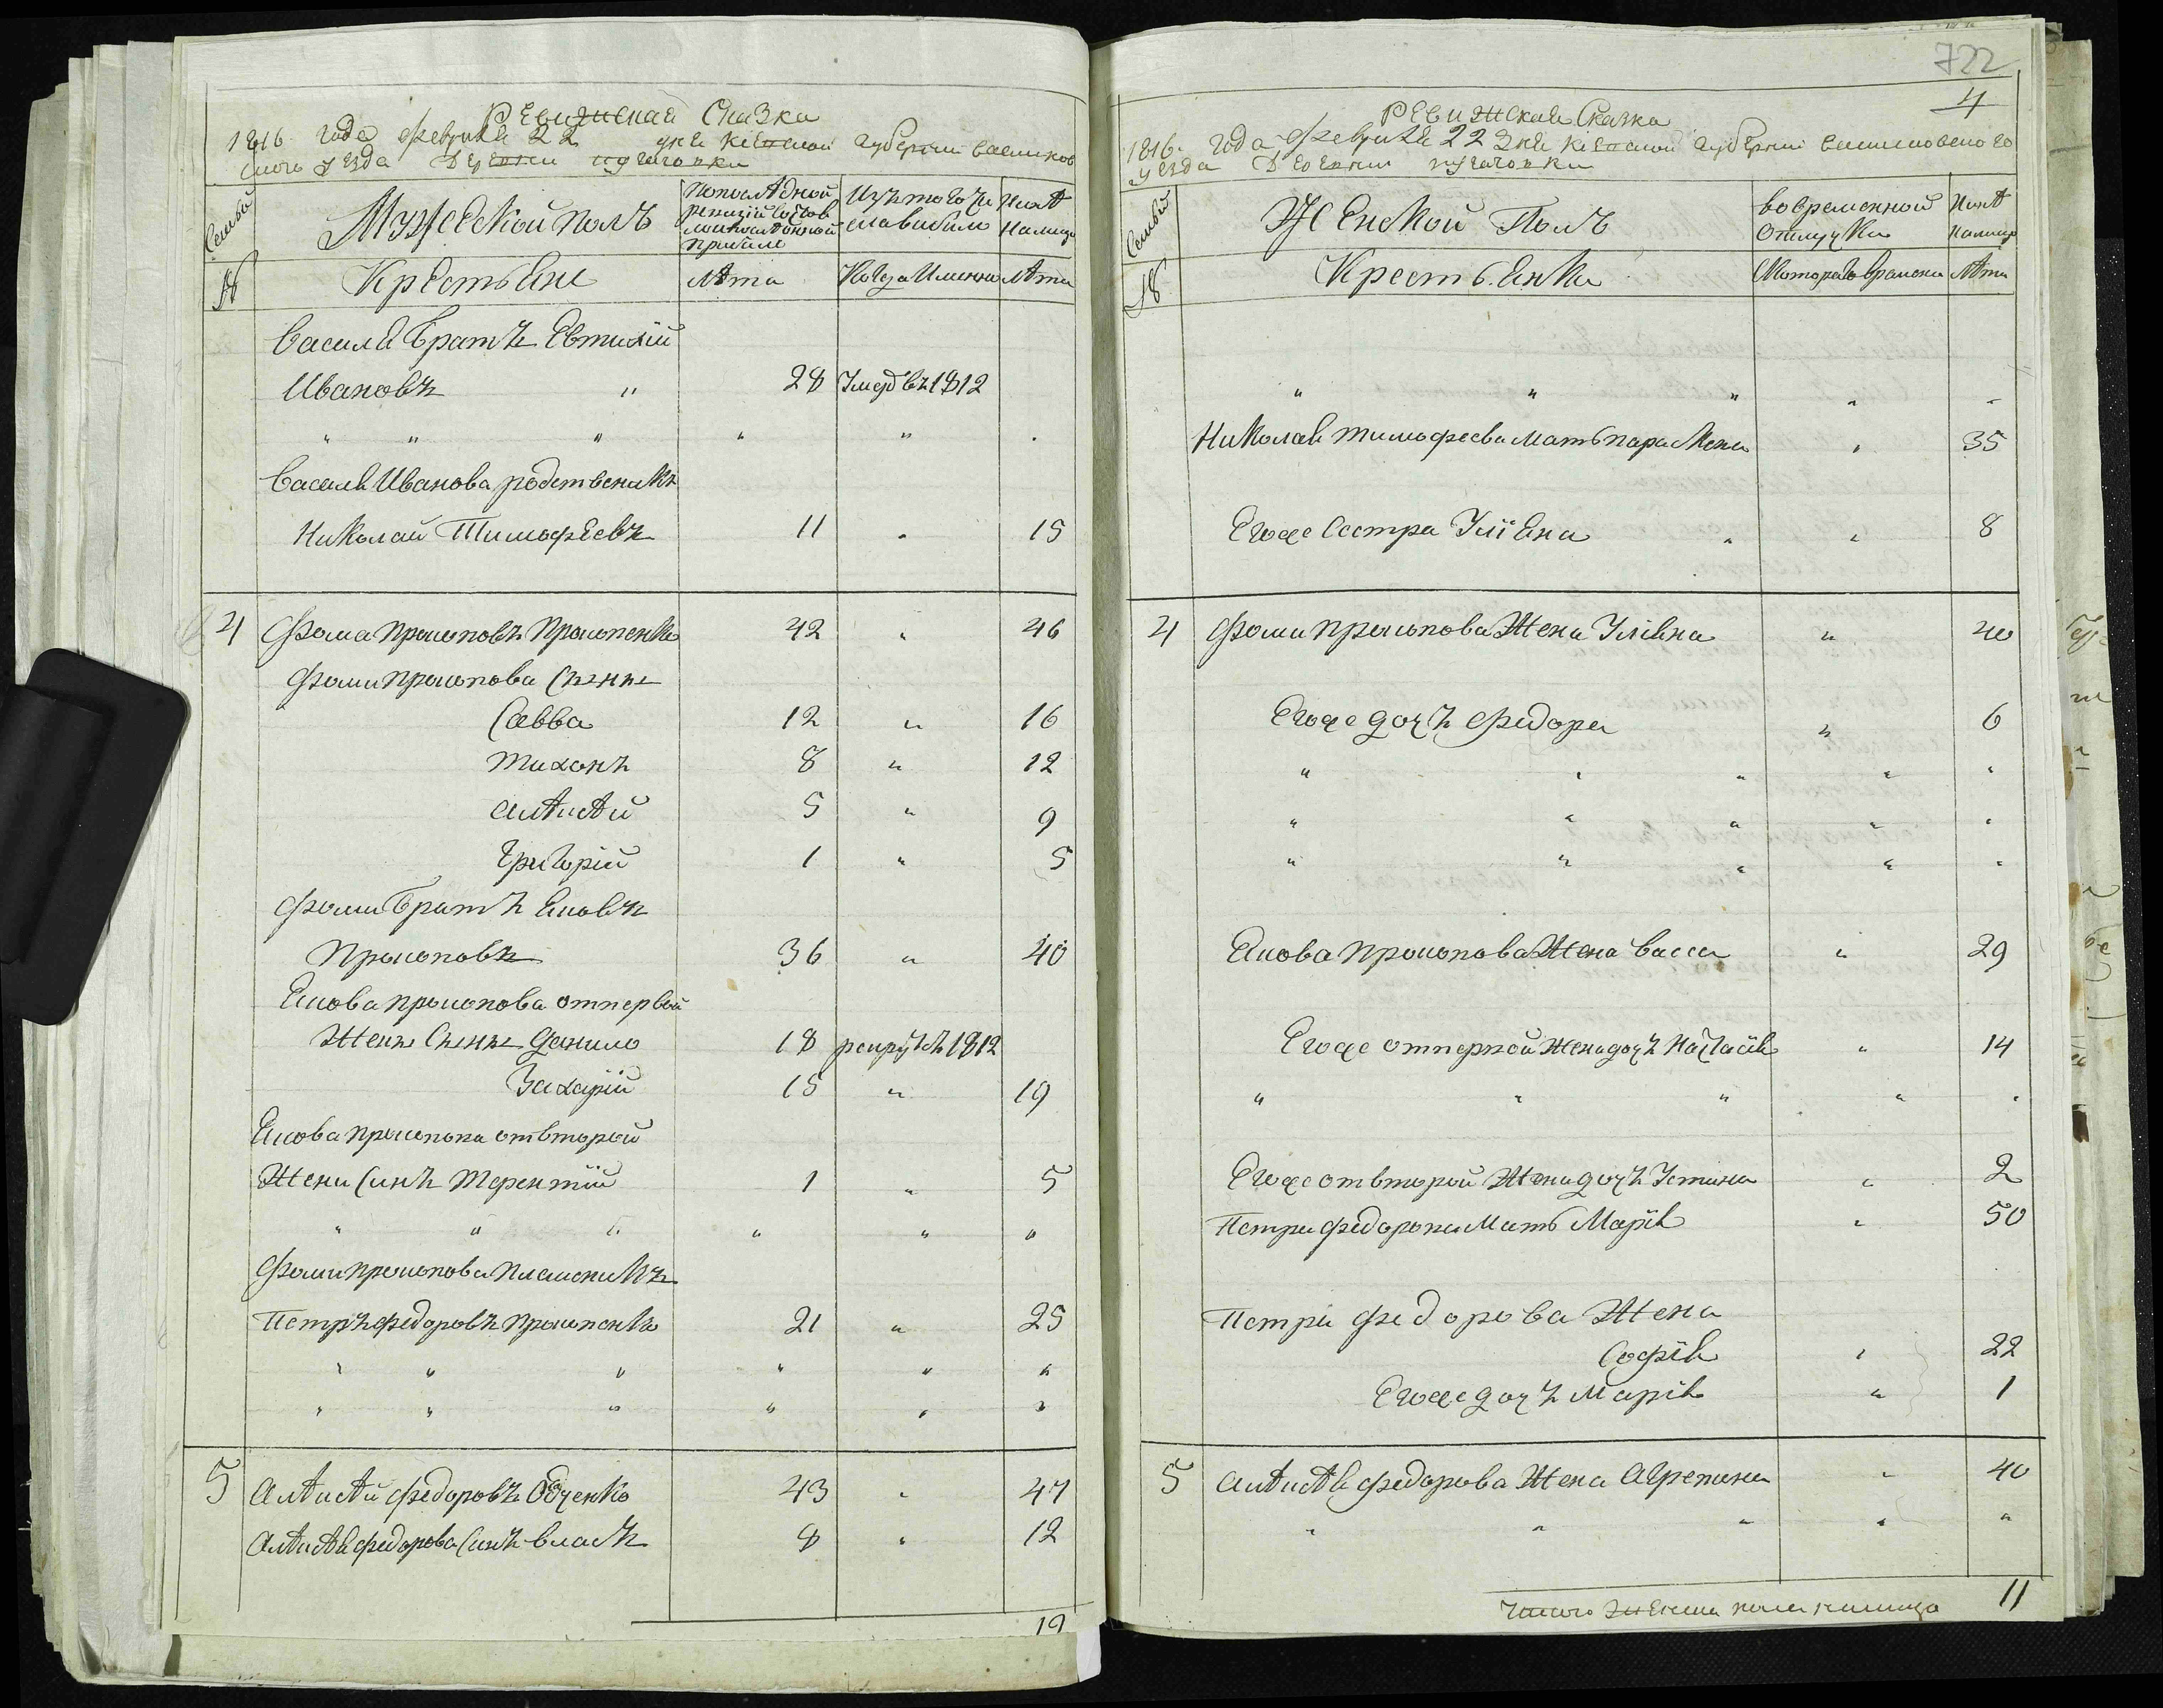 Ревижская Сказка
1816 года февраля 22 дня Кіевской губерніи васильков
ского уезда Деревни
Семьи
Мужеской полъ
По последней ревизіи состояло и после оной прибыло
Изъ того числа выбыло
Ныне на лицо
№
Крестьяне
Лѣта
Когда Именно
Лѣта
Василя братъ Евтихій
Ивановъ " 28 Умер въ 1812
" " " " "
Василя Иванова родственикъ
Николай Тимофеевъ 11 " 15
4 Фома Прокоповъ Прокопенко 42 " 46
Фоми Прокопова Сыны
Савва 12 " 16
Тихонъ 8 " 12
Алѣксѣй 5 " 9
Григорій 1 " 5
Фоми братъ Яковъ
Прокоповъ 36 " 40
Якова Прокопова от первой
Жены Сыны Данило 18 рекрутъ 1812
Захарій 15 " 19
Якова Прокопова от второй
Жени Синъ Терентій 1 " 5
" " " " " "
Фоми Прокопова племеникъ
Петръ Федоровъ Прокопенко 21 " 25
" " " " " "
" " " " " "
5 Алѣксѣй Федоровъ 43 " 47
Алѣксѣя Федорова Синъ Власъ 8 " 12
19
722
4
Ревижская Сказка
1816 года февраля 22 дня Кіевской губерніи Васильковского
уезда Деревни
Семьи
Женской Полъ
во временной отлучке
Ныне на лицо
№
Крестьянка
С которого времени
Лѣта
" " " " "
Николая Тимофеева Мать Параскева " 35
Егоже Сестра Уліяна " " 8
4 Фоми Прокопова Жена Уліяна " 40
Егоже дочъ Федора " 6
" " " " "
" " " " "
" " " " "
Якова Прокопова Жена Васса " 29
Егоже от первой жени дочъ Настасія " 14
" " " " "
Егоже от второй Жени дочъ Устина " 2
Петра Федорова Мать Марія " 50
Петра Федорова Жена
Софія " 22
Егоже дочъ Марія " 1
5 Алѣксѣя Федорова Жена Агрепина " 40
" " " " "
Итого Женска пола налицо 11